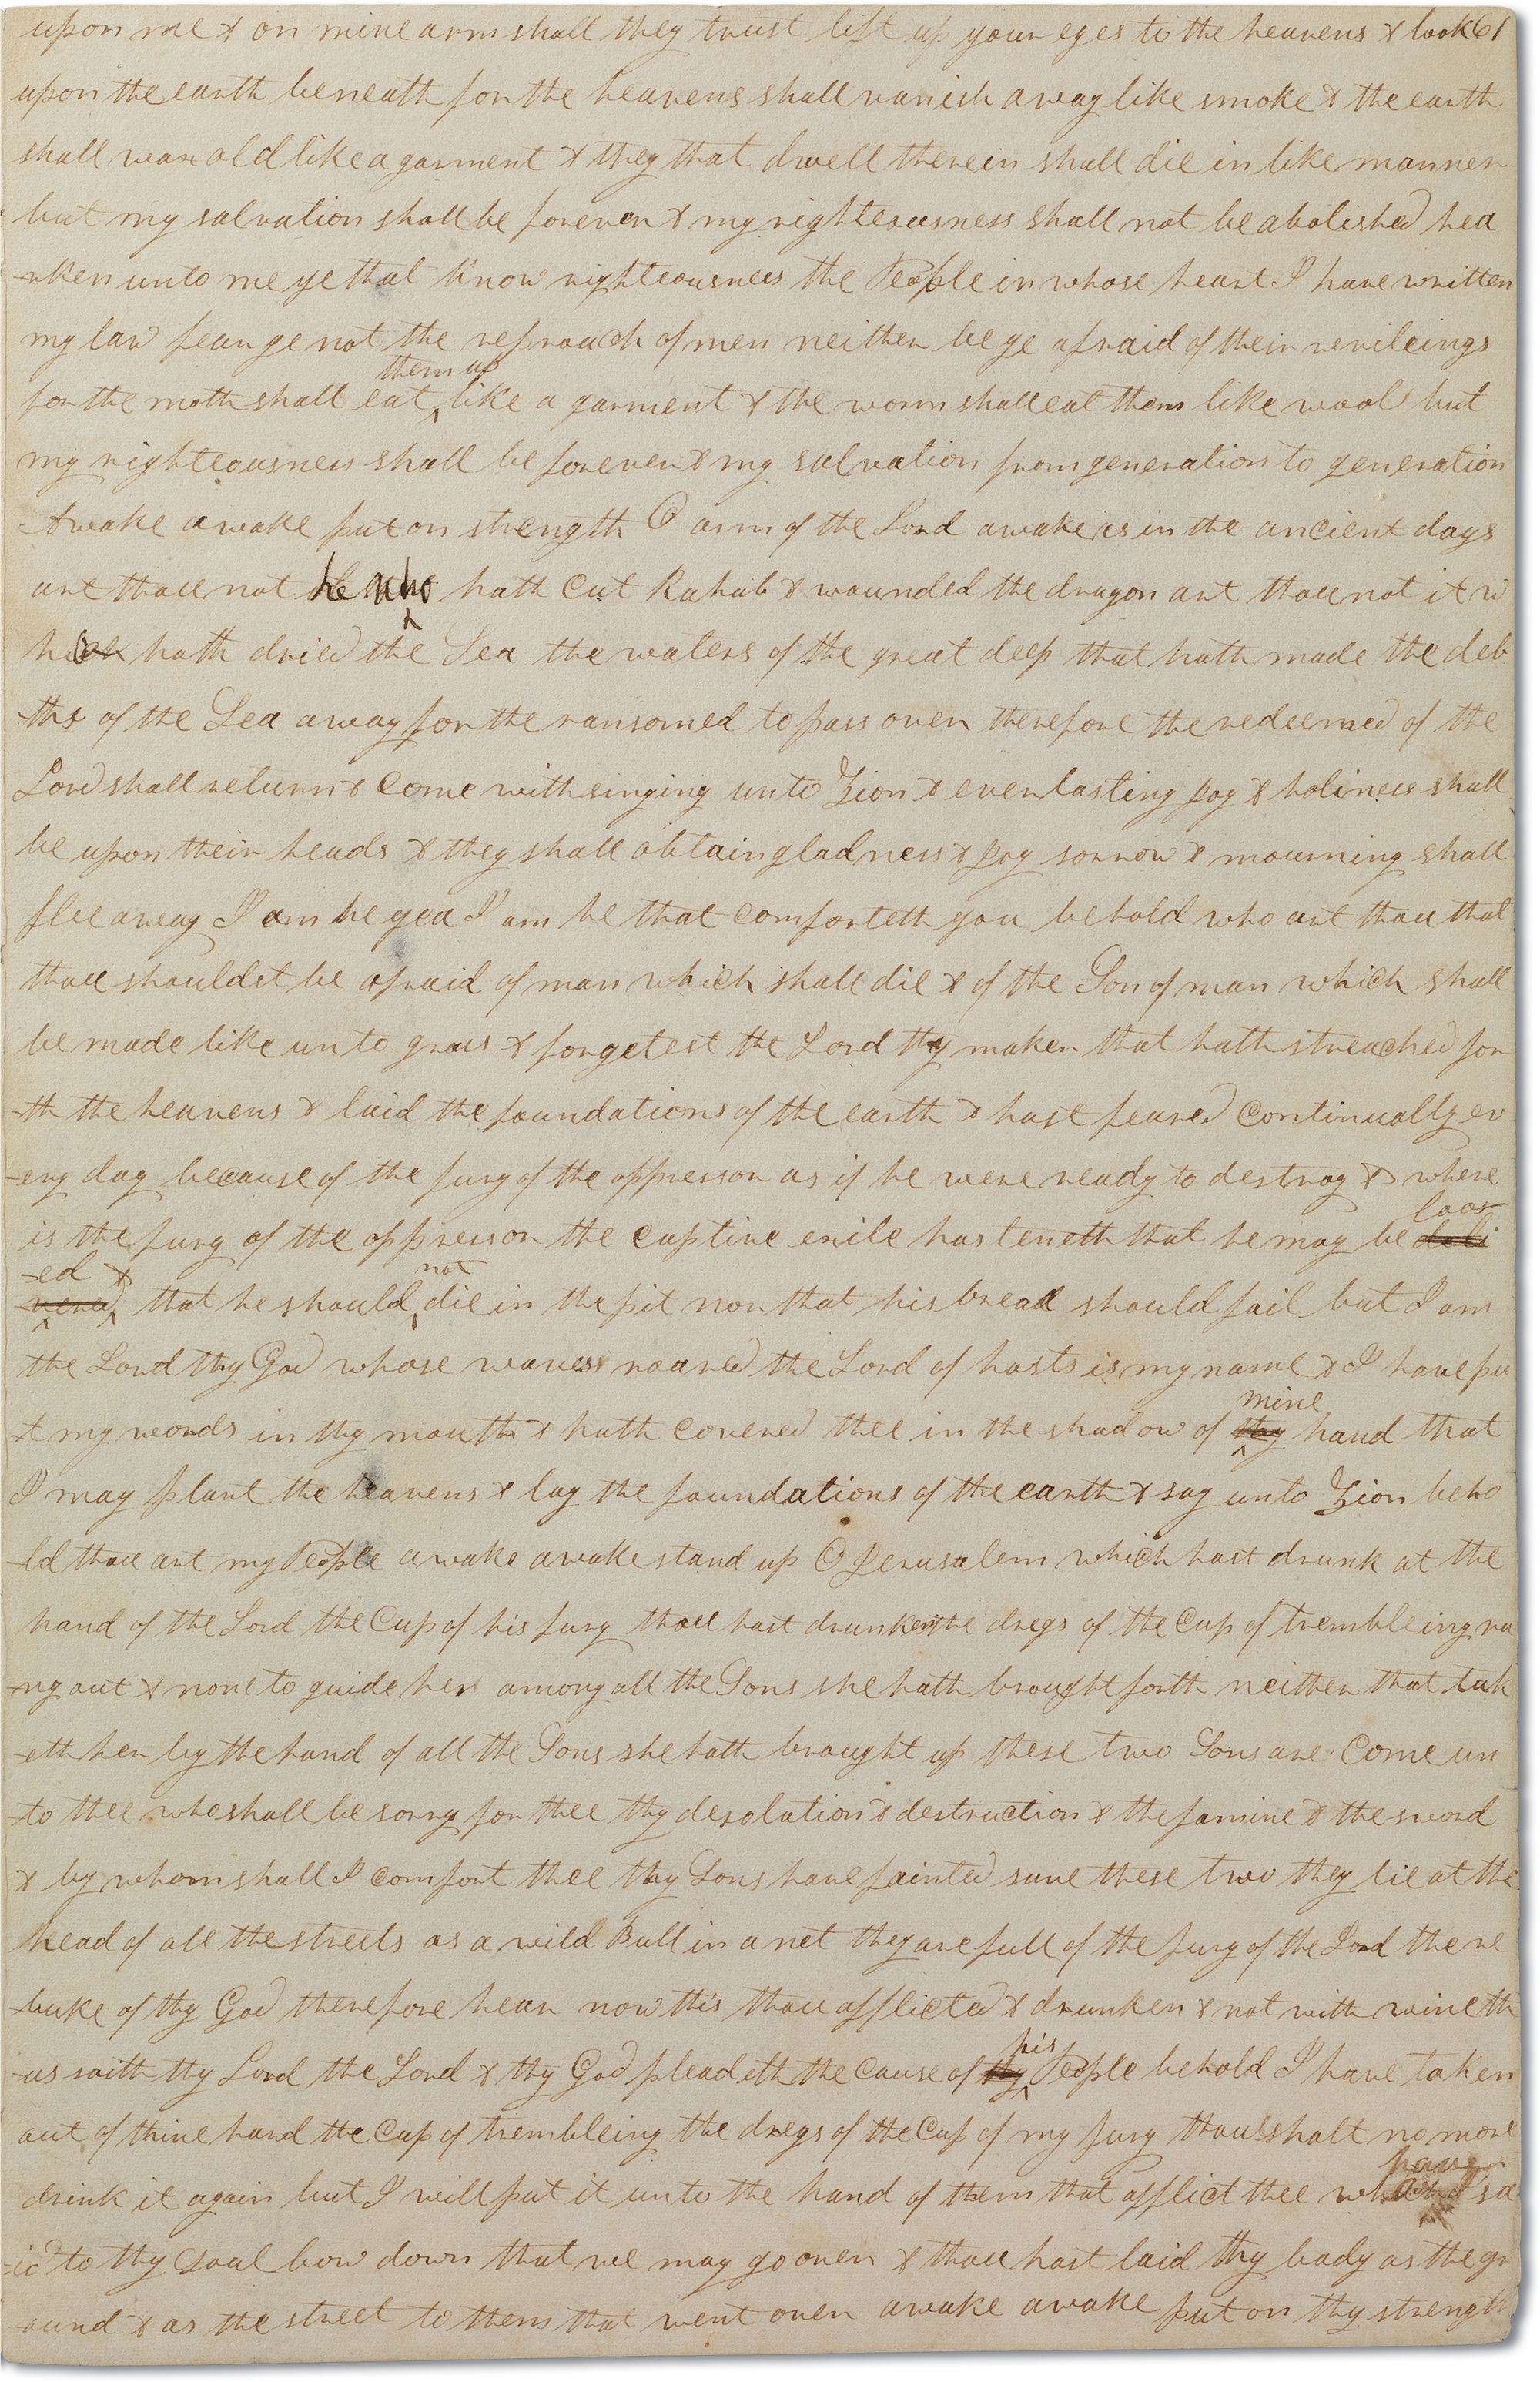 upon me & on mine arm shall they trust lift up your eyes to the heavens & look 61
upon the earth beneath for the heavens shall vanish away like smoke & the earth
shall wax old like a garment & they that dwell therein shall die in like manner
but my salvation shall be forever & my righteousness shall not be abolished hea
-rken unto me ye that know righteousness the People in whose heart I have written
my law fear ye not the reproach of men neither be ye afraid of their revileings
them up
for the moth shall eat like a garment & the worm shall eat them like wool but
my righteousness shall be forever & my salvation from generation to generation
Awake awake put on strength O arm of the Lord awake as in the ancient days
art thou not he who hath cut Rahab & wounded the dragon art thou not it w
hath dried the Sea the waters of the great deep that hath made the deb
-ths of the Sea away for the ransomed to pass over therefore the redeemed of the
Lord shall return & come with singing unto Zion & everlasting Joy & holiness shall
be upon their heads & they shall obtain gladness & Joy sorrow & mourning shall
flee away I am he yea I am he that comforteth you behold who art thou that
thou shouldst be afraid of man which shall die & of the Son of man which shall
be made like unto grass & forgetest the Lord thy maker that hath streached for
-th the heavens & laid the foundations of the earth & hast feared continually ev
-ery day because of the fury of the oppressor as if he were ready to destroy & where
loos
is the fury of the oppressor the captive exile hasteneth that he may be deli
-ed & not
vered that he should die in the pit nor that his bread should fail but I am
the Lord thy God whose waves roared the Lord of hosts is my name & I have pu
-t my words in thy mouth & hath covered thee in the shadow of thy mine hand that
I may plant the heavens & lay the foundations of the earth & say unto Zion beho
-ld thou art my People awake awake stand up O Jerusalem which hast drunk at the
hand of the Lord the Cup of his fury thou hast drunken the dregs of the Cup of trembleing ru
-ng out & none to guide her among all the Sons she hath brought forth neither that tak
-eth her by the hand of all the Sons she hath brought up these two Sons are Come un
-to thee who shall be sorry for thee thy desolation & destruction & the famine & the sword
& by whom shall I comfort thee thy Sons have fainted save these two they lie at the
head of all the streets as a wild Bull in a net they are full of the fury of the Lord the re
-buke of thy God therefore hear now this thou afflicted & drunken & not with wine th
-us saith thy Lord the Lord & thy God pleadeth the Cause of thy his People behold I have taken
out of thine hand the Cup of trembleing the dregs of the Cup of my fury thou shalt no more
drink it again but I will put it unto the hand of them that afflict thee who have sa
-id to thy Soul bow down that we may go over & thou hast laid thy body as the gr
-ound & as the street to them that went over awake awake put on thy strength